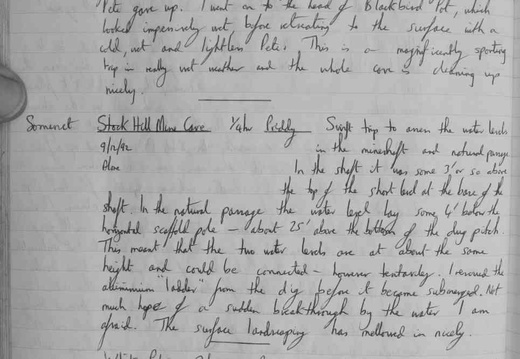 Pete gave up. I went on to the head of Blackbird Pot, which
looked impressively wet before retreating to the surface with a
cold, wet and lightless Pete. This is a magnificently sporting
trip in really wet weather and the whole cave is cleaning up
nicely.
Somerset Stock Hill Mine Cave 1/4hr Priddy Swift trip to assess the water levels
9/12/92 in the mineshaft and natural passage.
Alone In the shaft it was some 3' or so above
the top of the short level at the base of the
shaft. In the natural passage the water level lay some 4' below the
horizontal scaffold pole – about 25' above the bottom of the dug pitch.
This meant that the two water levels are at about the same
height and could be connected – however tentatively. I rescued the
aluminium "ladder" from the dig before it became submerged. Not
much hope of a sudden breakthrough by the water I am
afraid. The surface landscaping has mellowed in nicely.